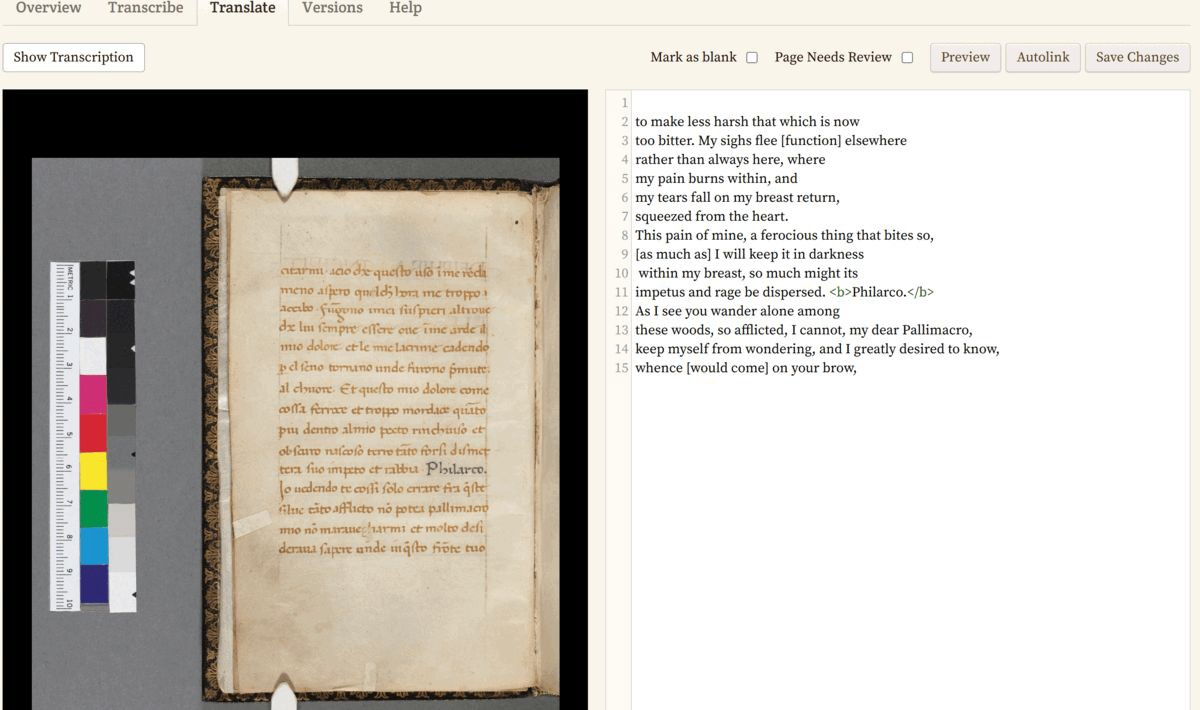 Overview Transcribe Translate Versions Help
Show Transcription Mark as blank Page Needs Review Preview Autolink Save Changes
METRIC 1 2 3 4 5 6 7 8 9 10
citarmi acio che questo uso i me reda
meno aspero quelch hora me troppo
acerbo fugono miei suspieri altroue
che lui sempre essere oue ime arde il
mio dolore et le mie lacrime cadendo
p el seno tornano unde furono pmute
al chuore Et questo mio dolore come
cossa feroce et troppo mordace quāto
piu dentro al mio pecto rinchiuso et
obscuro nascoso terro tāto forsi dismet
tera suo impeto et rabbia Philarco.
Io uedendo te cossi solo errare fra q̄ste
silue tāto afflicto nō potea pallimacro
mio nō marauegharmi et molto desi
deraua sapere unde in q̄sto frōte tuo
1
2 to make less harsh that which is now
3 too bitter. My sighs flee [function] elsewhere
4 rather than always here, where
5 my pain burns within, and
6 my tears fall on my breast return,
7 squeezed from the heart.
8 This pain of mine, a ferocious thing that bites so,
9 [as much as] I will keep it in darkness
10 within my breast, so much might its
11 impetus and rage be dispersed. <b>Philarco.</b>
12 As I see you wander alone among
13 these woods, so afflicted, I cannot, my dear Pallimacro,
14 keep myself from wondering, and I greatly desired to know,
15 whence [would come] on your brow,